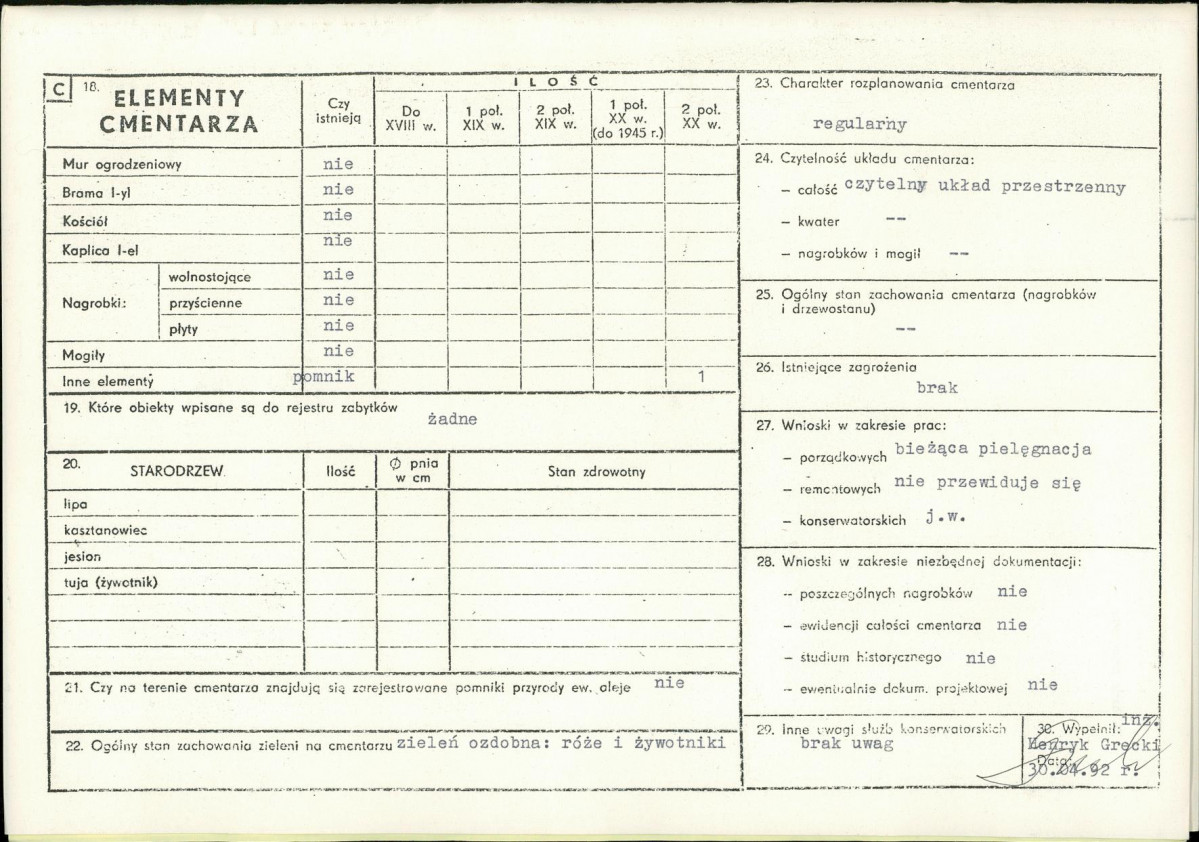 C 18. ELEMENTY CMENTARZA
Czy istnieją
ILOŚĆ
Do XVIII w.
1 poł. XIX w.
2 poł. XIX w.
1 poł. XX w. (do 1945 r.)
2 poł. XX w.
Mur ogrodzeniowy nie
Brama I-yI nie
Kościół nie
Kaplica I-eI nie
Nagrobki:
wolnostojące nie
przyścienne nie
płyty nie
Mogiły nie
Inne elementy pomnik 1
19. Które obiekty wpisane są do rejestru zabytków
żadne
20. STARODRZEW Ilość Ø pnia w cm Stan zdrowotny
lipa
kasztanowiec
jesion
tuja (żywotnik)
21. Czy na terenie cmentarza znajdują się zarejestrowane pomniki przyrody ew. aleje nie
22. Ogólny stan zachowania zieleni na cmentarzu zieleń ozdobna: róże i żywotniki
23. Charakter rozplanowania cmentarza
regularny
24. Czytelność układu cmentarza:
– całość czytelny układ przestrzenny
– kwater --
– nagrobków i mogił --
25. Ogólny stan zachowania cmentarza (nagrobków
i drzewostanu)
--
26. Istniejące zagrożenia
brak
27. Wnioski w zakresie prac:
– porządkowych bieżąca pielęgnacja
– remontowych nie przewiduje się
– konserwatorskich j.w.
28. Wnioski w zakresie niezbędnej dokumentacji:
– poszczególnych nagrobków nie
– ewidencji całości cmentarza nie
– studium historycznego nie
– ewentualnie dokum. projektowej nie
29. Inne uwagi służb konserwatorskich
brak uwag
30. Wypełnił: inż.
Henryk Grecki
Data:
30.04.92 r.